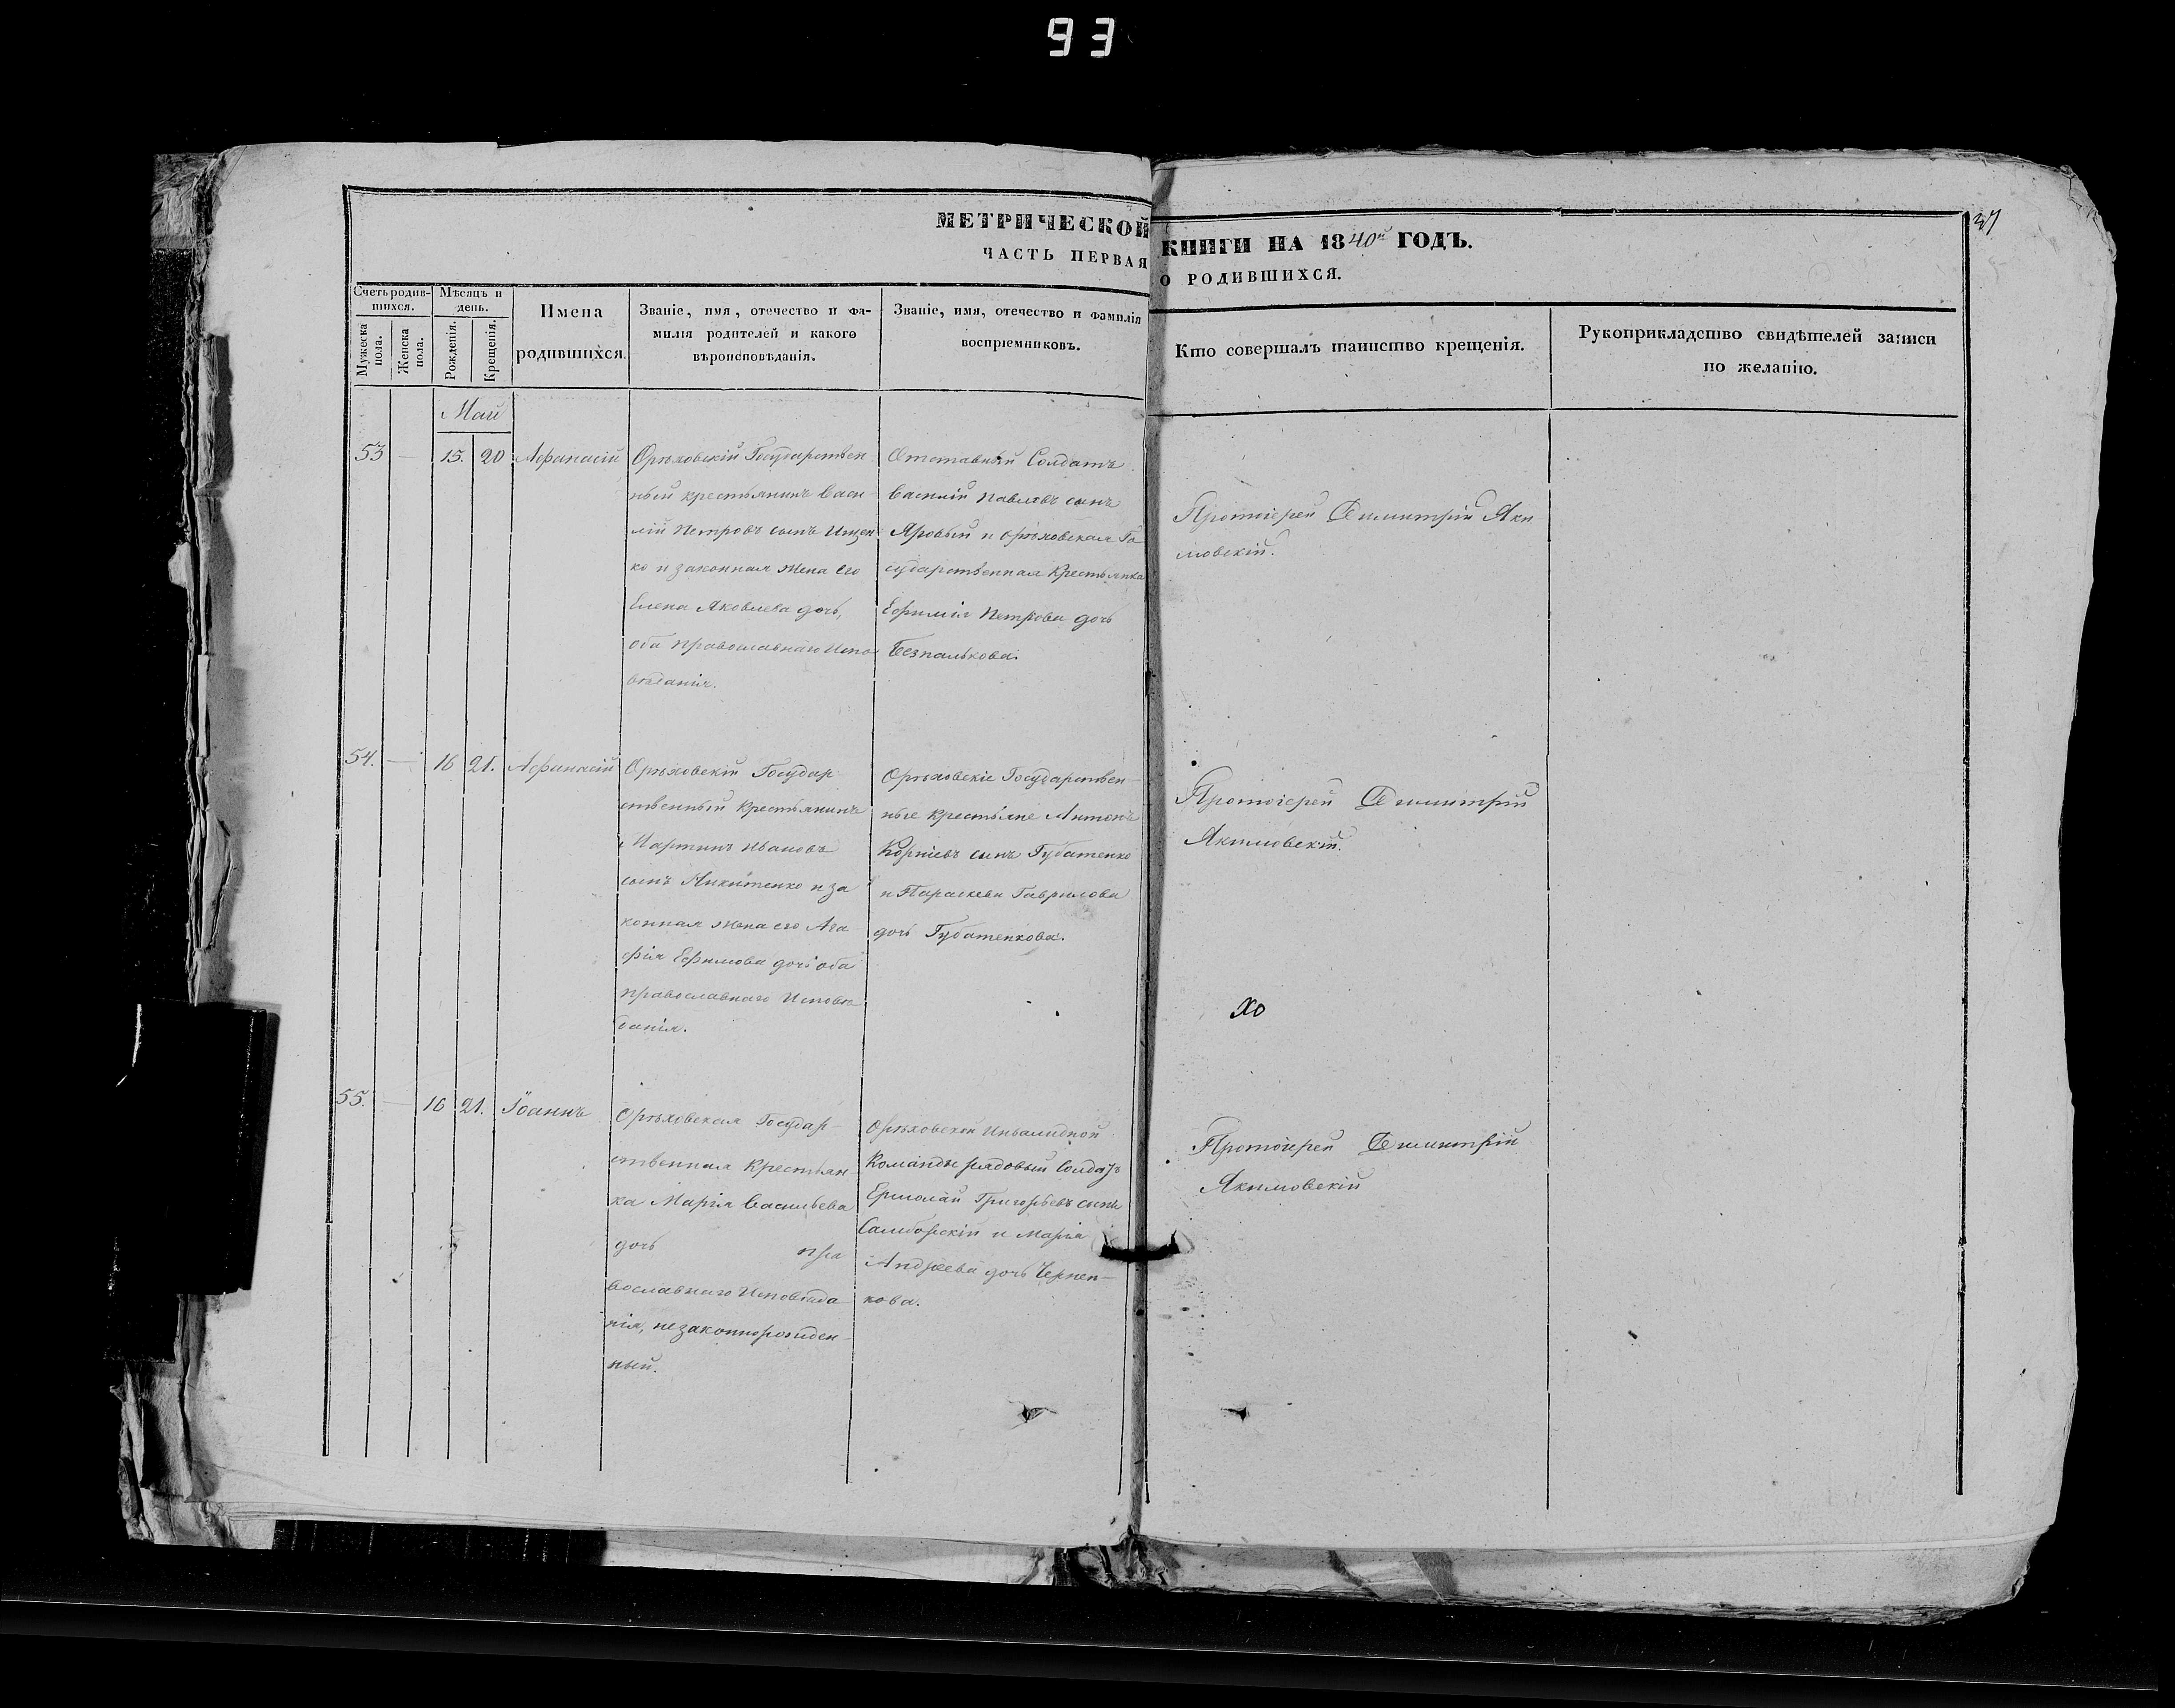 93
МЕТРИЧЕСКОЙ КНИГИ НА 1840й ГОДЪ.
ЧАСТЬ ПЕРВАЯ О РОДИВШИХСЯ.
37
Счетъ родив-
шихся.
Мужеска
пола.
Женска
пола.
Мѣсяцъ и
день.
Рожденія.
Крещенія.
Имена
родившихся.
Званіе, имя, отечество и фа-
милія родителей и какого
вѣроисповѣданія.
Званіе, имя, отечество и фамилія
воспріемниковъ.
Кто совершалъ таинство крещенія.
Рукоприкладство свидѣтелей записи
по желанію.
Май
53 — 15. 20 Афанасій
Орѣховскій Государствен-
ный крестьянинъ Васи-
лій Петровъ сынъ Ищен
ко и законная жена его
Елена Яковлева дочь,
оба православнаго Испо
вѣданія.
Отставный Солдатъ
Василій Павловъ сынъ
Яровый и орѣховская Го
сударственная Крестьянка
Ефимія Петрова дочь
Безпалькова.
Протоіерей Димитрій Аки
мовскій.
54. — 16 21. Афанасій
Орѣховскій Государ
ственный Крестьянинъ
Мартинъ Ивановъ
сынъ Никитенко и за
конная жена его Ага
фія Ефимова дочь оба
православнаго Исповѣ
данія.
Орѣховскіе Государствен-
ные крестьяне Антонъ
Корніевъ сынъ Губатенко
и Параскева Гаврилова
дочь Губатенкова.
Протоіерей Димитрій
Акимовскій.
ХО
55. — 16 21. Іоаннъ
Орѣховская Государ-
ственная Крестьян
ка Марія Васильева
дочь пра
вославнаго Исповѣда
нія, незаконнорожден-
ный.
Орѣховской Инвалидной
Команды рядовый Солдатъ
Ермолай Григорьевъ сынъ
Самборскій и Марія
Андреева дочь Черпен-
кова.
Протоіерей Димитрій
Акимовскій